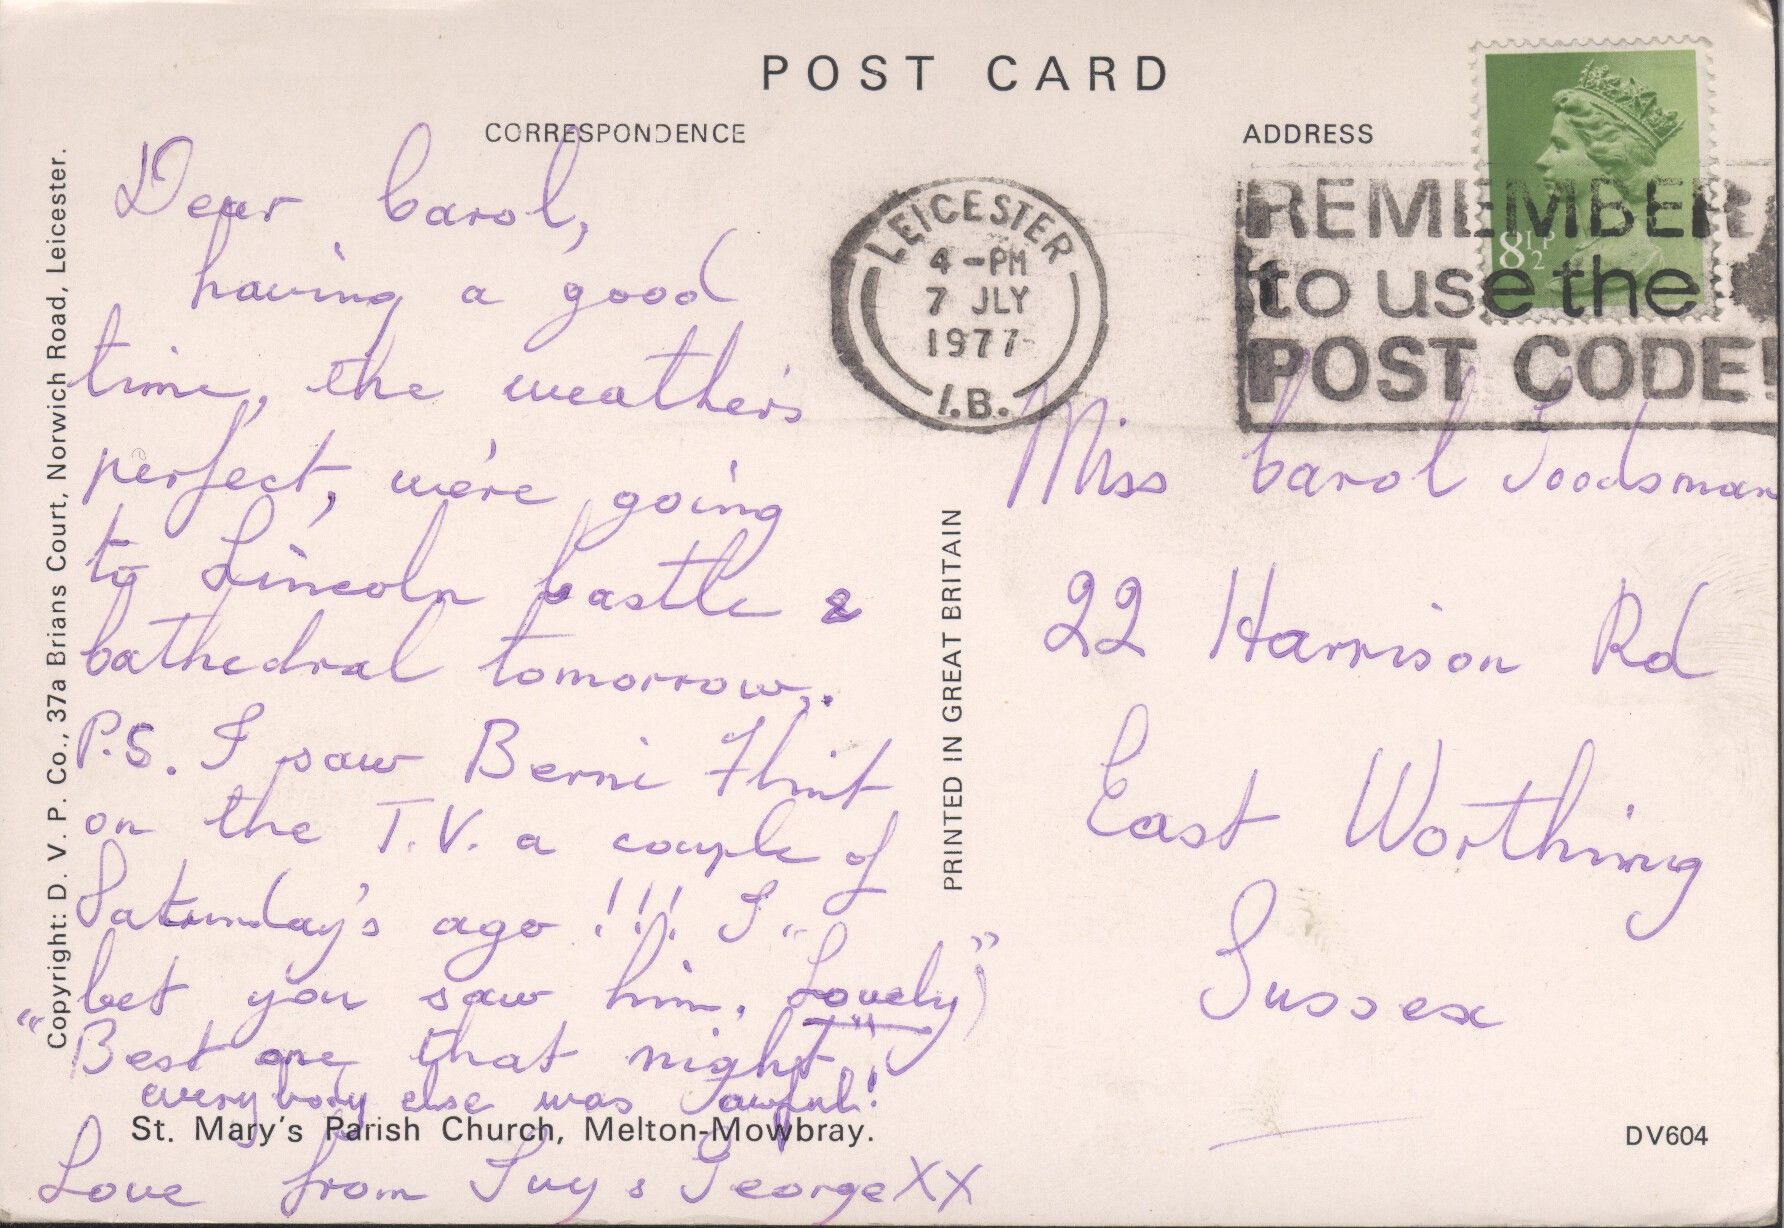 POST CARD
CORRESPONDENCE
ADDRESS
Dear Carol,
having a good
time, the weather's
perfect, we're going
to Lincoln Castle &
Cathedral tomorrow.
P.S. I saw Berni Flint
on the T.V. a couple of
Saturday's ago !!! I
bet you saw him. "Lovely"
"Best one that night"
everybody else was awful!
Love from Guy & George XX
LEICESTER
4 - PM
7 JLY
1977
I.B.
REMEMBER
to use the
POST CODE!
8½P
Miss Carol Goodsman
22 Harrison Rd
East Worthing
Sussex
PRINTED IN GREAT BRITAIN
Copyright: D. V. P. Co., 37a Brians Court, Norwich Road, Leicester.
St. Mary's Parish Church, Melton-Mowbray.
DV604